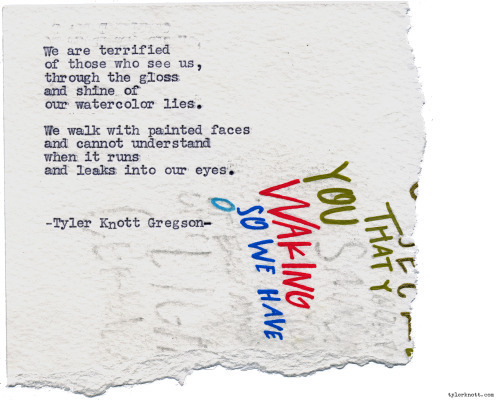 We are terrified
of those who see us,
through the gloss
and shine of
our watercolor lies.
We walk with painted faces
and cannot understand
when it runs
and leaks into our eyes.
-Tyler Knott Gregson-
YOU
WAKING
SO WE HAVE
THAT Y
tylerknott.com